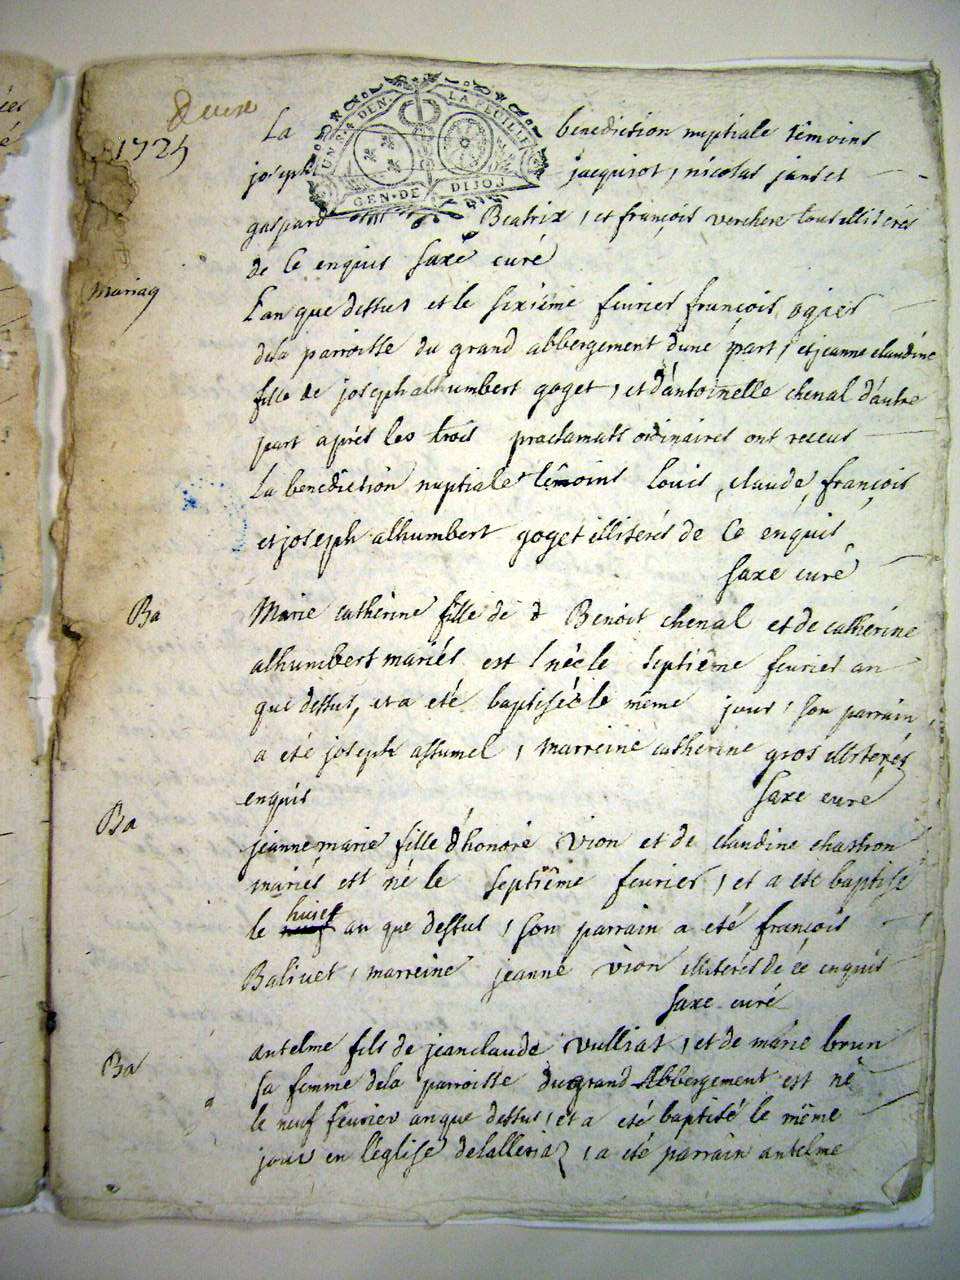 deuxe
1725
La benediction nuptiale témoins
UN S. 4 DEN. LA FEUILLE
GEN. DE DIJON
joseph jacquirot, nicolas janret
gaspard Beatrix, et françois verchere tous illiterés
de ce enquis Saxe curé
Mariag
L'an que dessus et le sixiême fevrier françois ogier
dela parroisse du grand abbergement d'une part, et jeanne claudine
fille de joseph alhumbert goget, et d'antoinelle chenal d'autre
part après les trois proclamats ordinaires ont receus
La benediction nuptiale têmoins Louis, claude, françois
et joseph alhumbert goget illiterés de Ce enquis
Saxe curé
Ba
Marie catherine fille de d Benoit chenal et de catherine
alhumbert mariés est née le septiême fevrier an
que dessus, et a eté baptisée le même jour, son parrain
a été joseph assumel, marreine catherine gros illiterés
enquis Saxe curé
Ba
jeanne marie fille d'honoré vion et de claudine chastron
mariés est né le septiême fevrier, et a eté baptisé
le huict an que dessus, son parrain a eté françois
Balivet, marreine jeanne vion illiterés de ce enquis
Saxe curé
Ba
antelme fils de jeanclaude vulliat, et de marie brun
sa femme dela parroisse du grand Abbergement est né
le neuf fevrier an que dessus, et a eté baptisé le même
jour en l'église delalleriaz, a eté parrain antelme